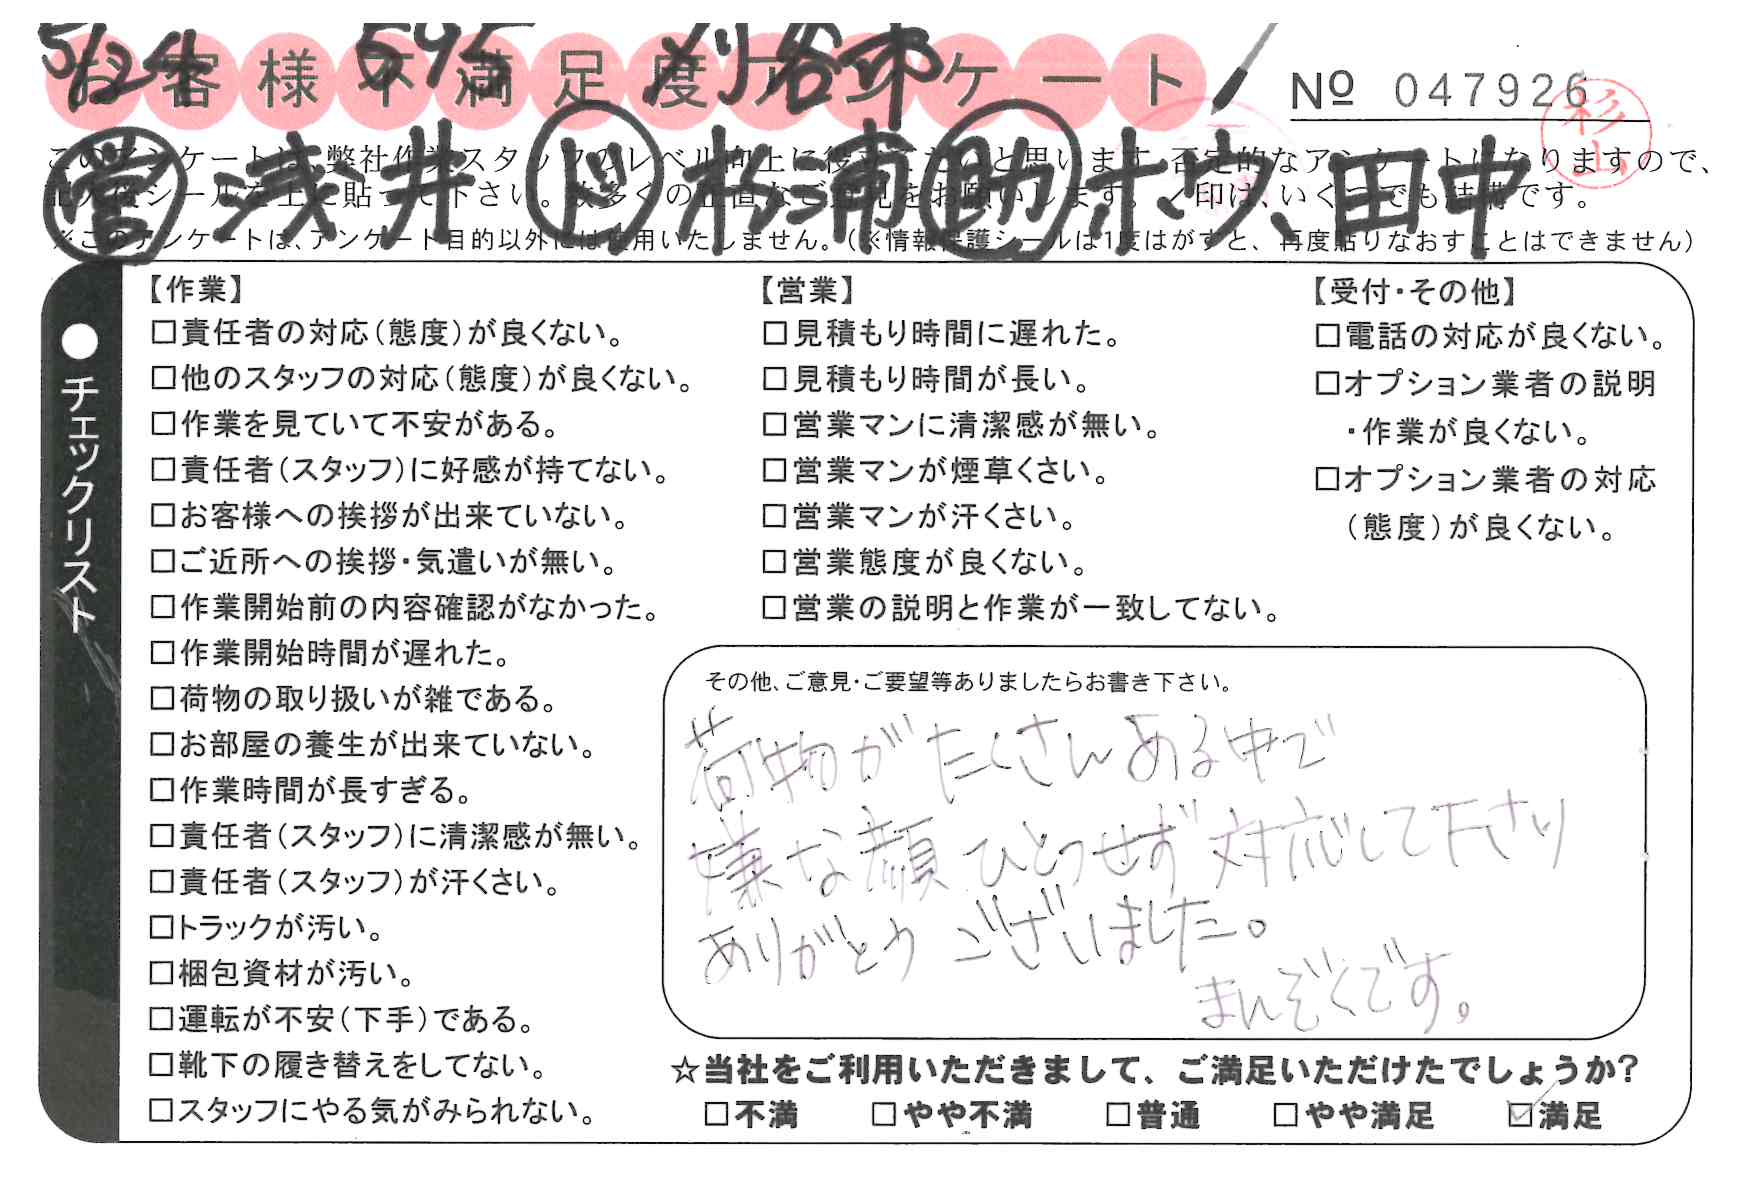 5/24 595 刈谷市
お客様不満足度アンケート
Nº 047926
杉山
営 浅井 ド 松浦 助 ホウ、田中
このアンケートは、弊社作業スタッフのレベル向上に役立てたいと思います。否定的なアンケートになりますので、
記入後シールを上に貼って下さい。数多くの正直なご意見をお願いします。✓印は、いくつでも結構です。
※このアンケートは、アンケート目的以外には使用いたしません。(※情報保護シールは1度はがすと、再度貼りなおすことはできません)
●チェックリスト
【作業】
□責任者の対応(態度)が良くない。
□他のスタッフの対応(態度)が良くない。
□作業を見ていて不安がある。
□責任者(スタッフ)に好感が持てない。
□お客様への挨拶が出来ていない。
□ご近所への挨拶・気遣いが無い。
□作業開始前の内容確認がなかった。
□作業開始時間が遅れた。
□荷物の取り扱いが雑である。
□お部屋の養生が出来ていない。
□作業時間が長すぎる。
□責任者(スタッフ)に清潔感が無い。
□責任者(スタッフ)が汗くさい。
□トラックが汚い。
□梱包資材が汚い。
□運転が不安(下手)である。
□靴下の履き替えをしてない。
□スタッフにやる気がみられない。
【営業】
□見積もり時間に遅れた。
□見積もり時間が長い。
□営業マンに清潔感が無い。
□営業マンが煙草くさい。
□営業マンが汗くさい。
□営業態度が良くない。
□営業の説明と作業が一致してない。
【受付・その他】
□電話の対応が良くない。
□オプション業者の説明
・作業が良くない。
□オプション業者の対応
(態度)が良くない。
その他、ご意見・ご要望等ありましたらお書き下さい。
荷物がたくさんある中で
嫌な顔ひとつせず対応して下さり
ありがとうございました。
まんぞくです。
☆当社をご利用いただきまして、ご満足いただけたでしょうか?
□不満 □やや不満 □普通 □やや満足 ☑満足